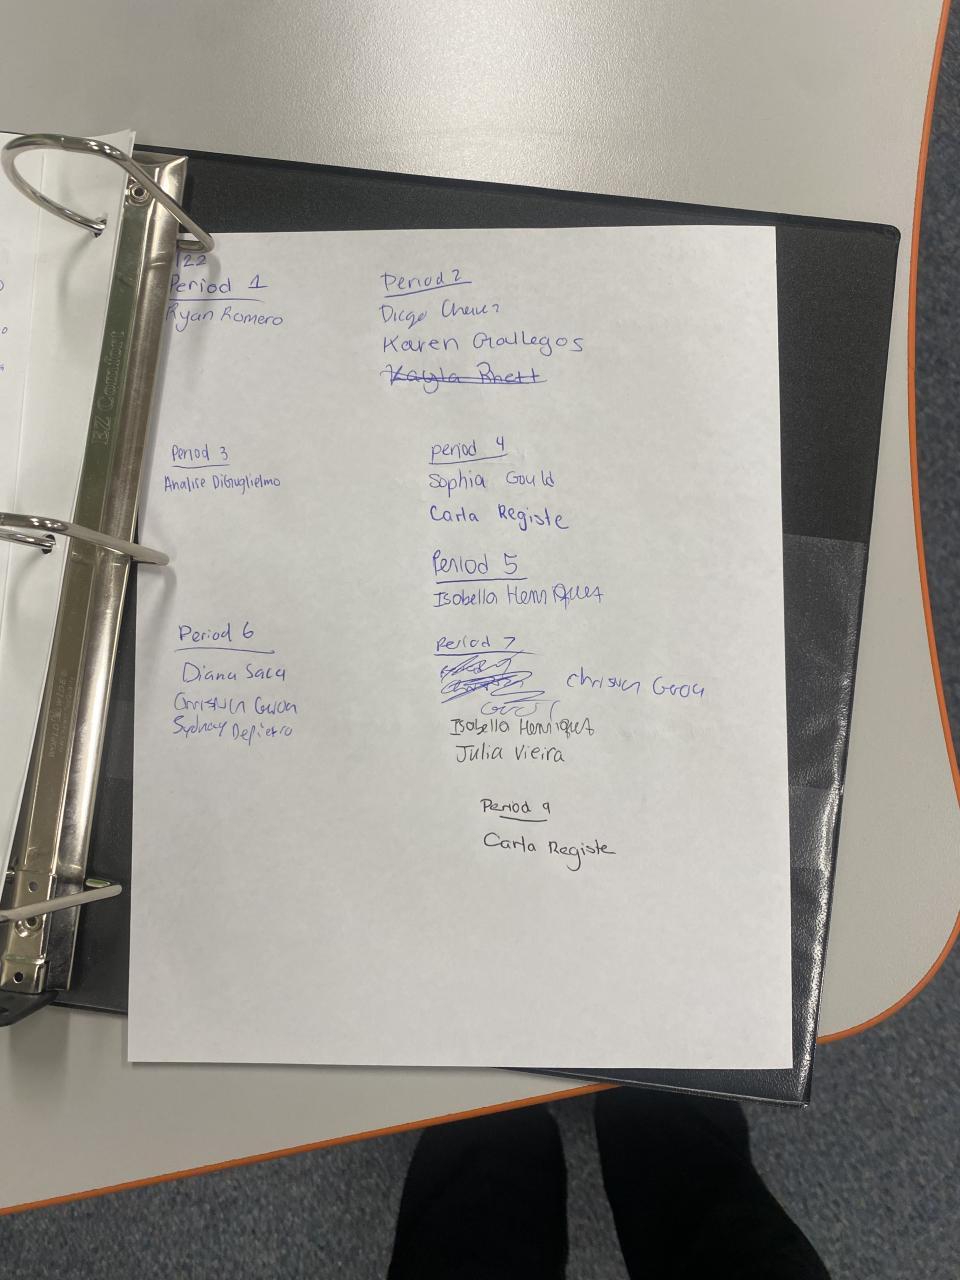 122
Period 1
Ryan Romero
Period 2
Diego
Karen Gallegos
Kayla Rhett
Period 3
Analise DiGuglielmo
period 4
Sophia Gould
Carla Registe
Period 5
Isabella Henriquez
Period 6
Diana Saca
Sydney Depietro
Period 7
Isabella Henriquez
Julia Vieira
Period 9
Carla Registe